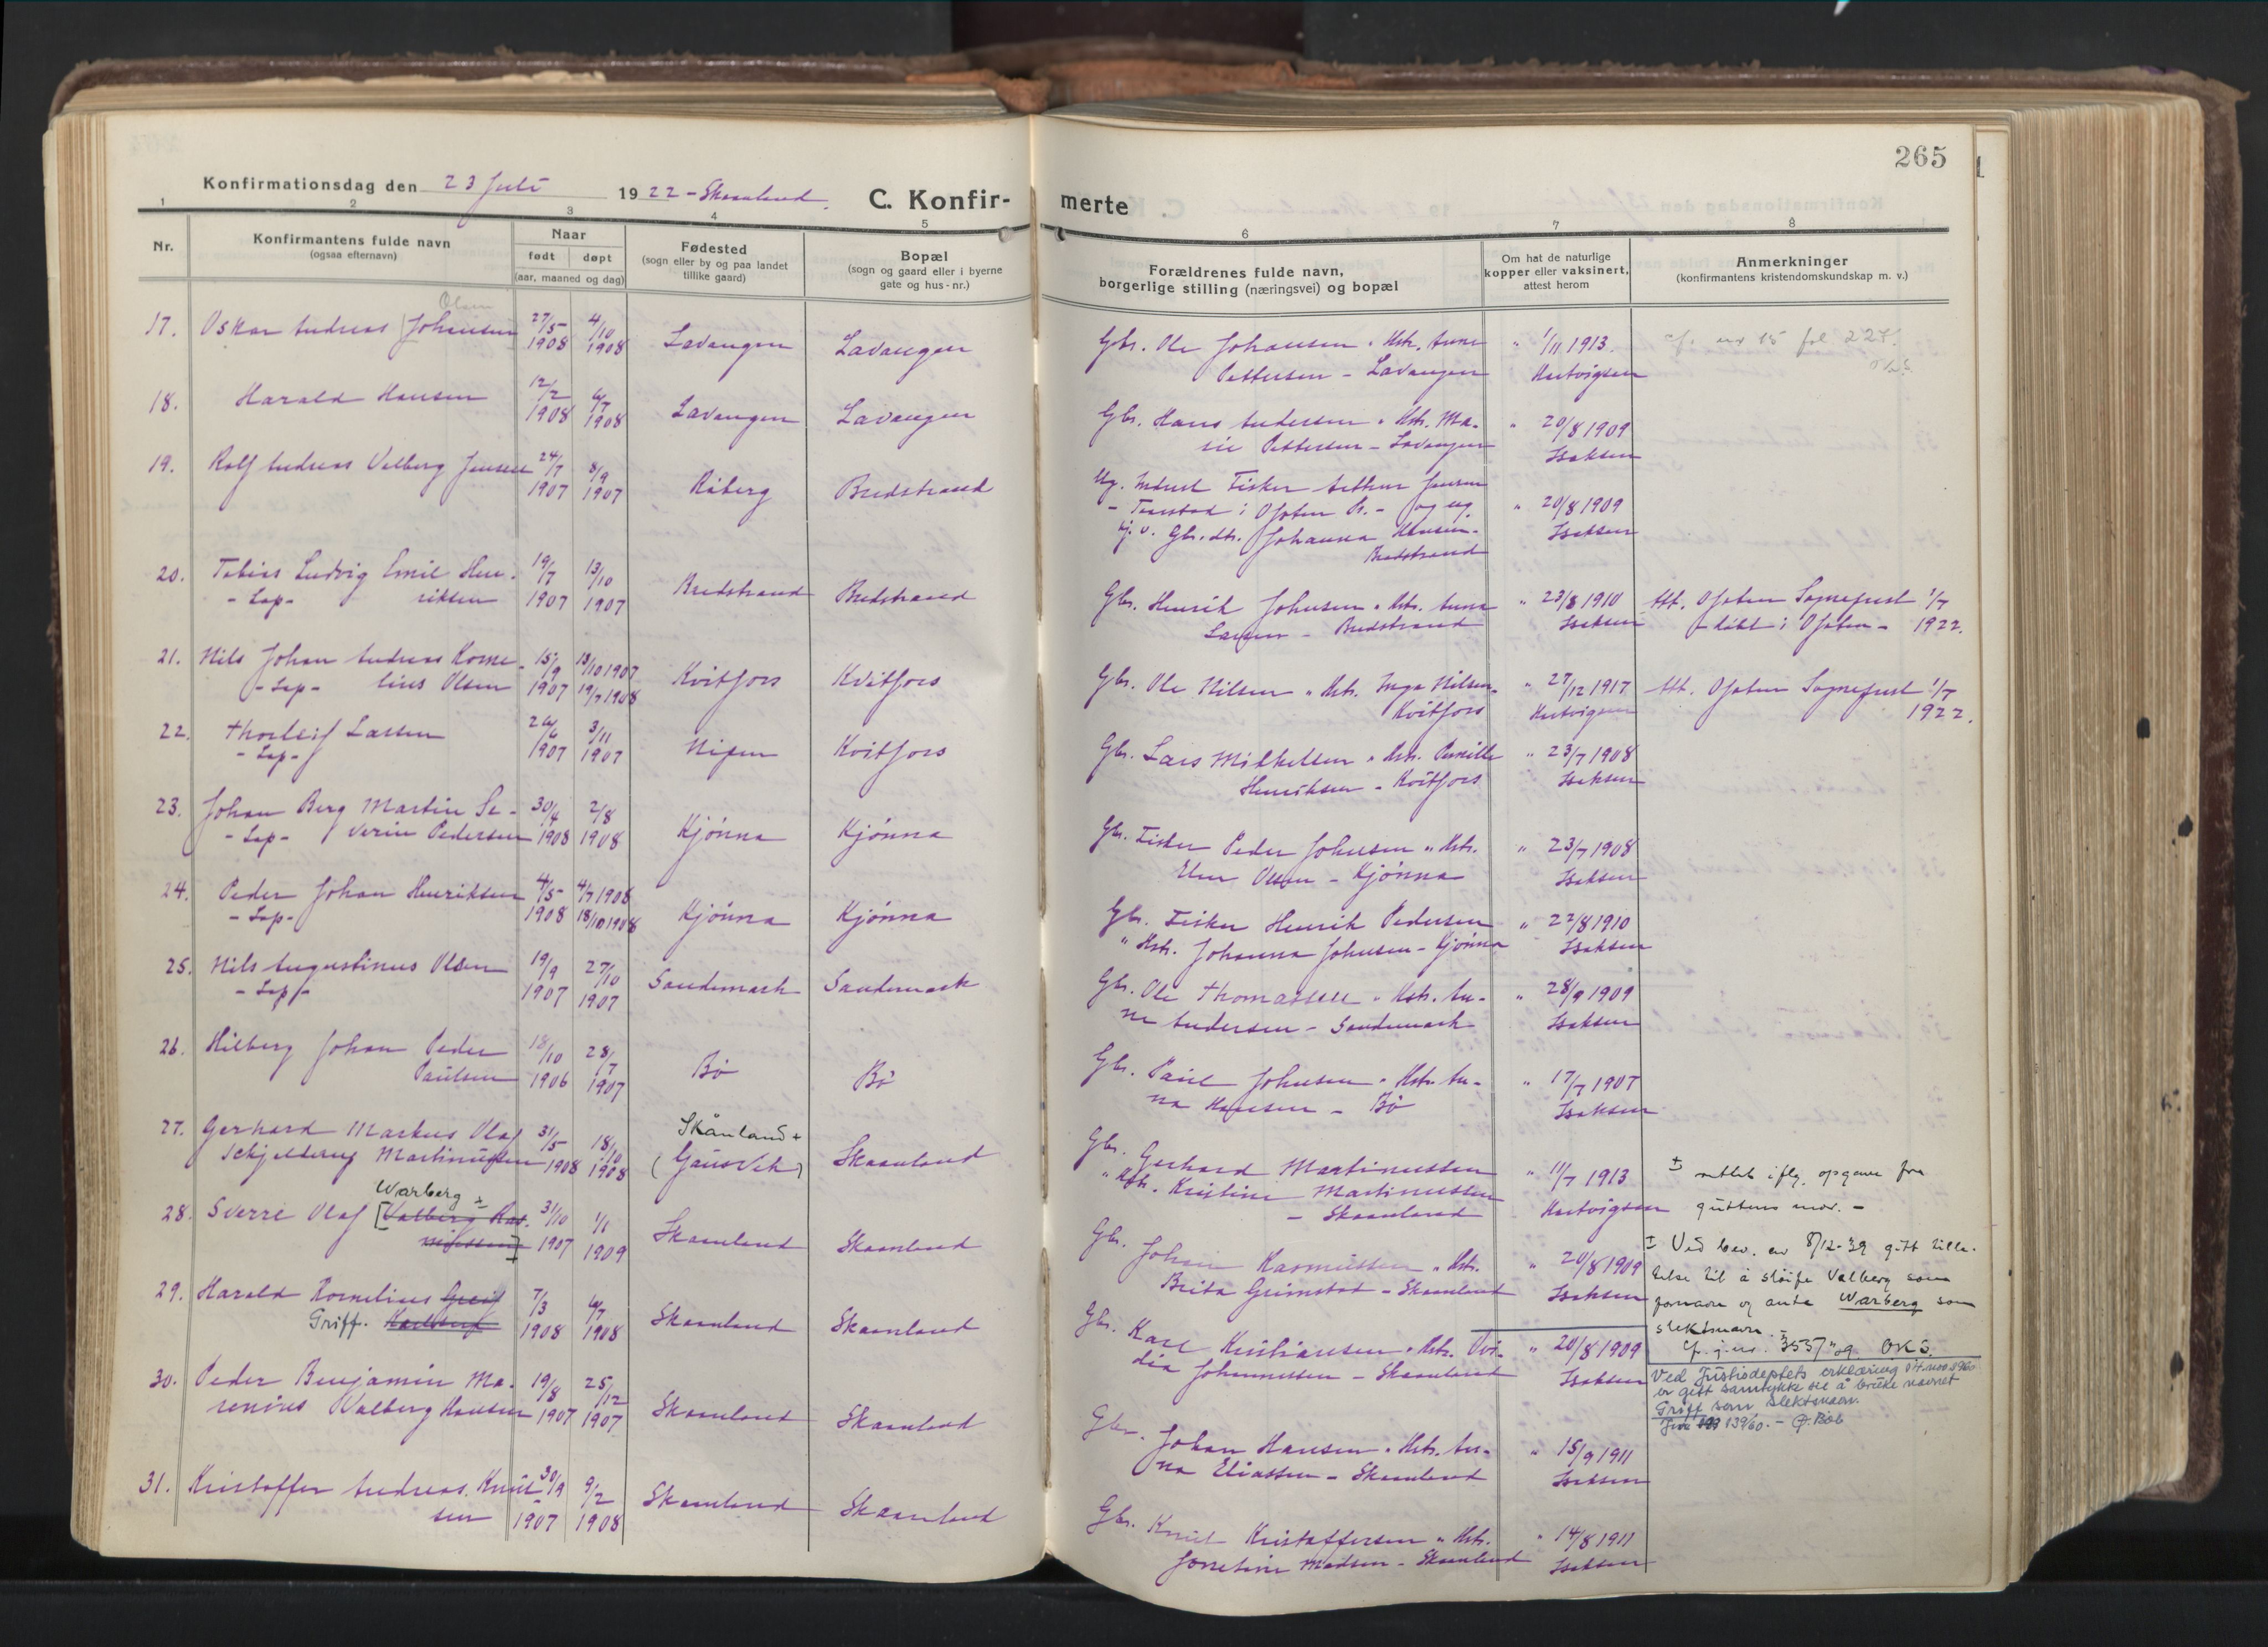 265
Konfirmationsdag den 23 Juli 1922 - Skaanland.
C. Konfir-
merte
1 2 3 4 5 6 7 8
Nr.
Konfirmantens fulde navn
(ogsaa efternavn)
Naar
født døpt
(aar, maaned og dag)
Fødested
(sogn eller by og paa landet
tillike gaard)
Bopæl
(sogn og gaard eller i byerne
gate og hus-nr.)
Forældrenes fulde navn,
borgerlige stilling (næringsvei) og bopæl
Om hat de naturlige
kopper eller vaksinert,
attest herom
Anmerkninger
(konfirmantens kristendomskundskap m. v.)
Olsen
17. Oskar Andreas Johansen 27/5 1908 4/10 1908 Lavangen Lavangen
Gbr. Ole Johansen " Hstr. Anne
Pettersen - Lavangen
" 1/11 1913.
Hartvigsen
nr 15 fol 227.
18. Harald Hansen 12/2 1908 6/7 1908 Lavangen Lavangen
Gbr. Hans Andersen " Hstr. Ma-
rie Pettersen - Lavangen
" 20/8 1909
Isaksen
19. Rolf Andreas Valberg Jensen 24/7 1907 8/9 1907 Råberg Bredstrand
Ug. Indust Fisker Arthur Jensen
- i Ofoten Pr. - og ug.
Gbr. dtr. Johanna Hansen -
Bredstrand
" 20/8 1909
Isaksen
20. Tobias Ludvig Emil Hen-
- Lap - riksen 19/7 1907 13/10 1907 Bredstrand Bredstrand
Gbr. Henrik Johnsen " Hstr. Anna
Larsen - Bredstrand
" 23/8 1910
Isaksen
Att. Ofoten Sogneprest 1/7
- døbt i Ofoten - 1922.
21. Nils Johan Andreas Korne-
- Lap - lius Olsen 15/9 1907 13/10 1907 19/7 1908 Kvitfors Kvitfors
Gbr. Ole Nilsen " Hstr. Inga Nilsen -
Kvitfors
" 27/12 1917
Hartvigsen
Att. Ofoten Sogneprest 1/7
1922.
22. Thorleif Larsen
- Lap - 26/6 1907 3/11 1907 Nipen Kvitfors
Gbr. Lars Mikkelsen " Hstr. Pernille
Henriksen - Kvitfors
" 23/7 1908
Isaksen
23. Johan Berg Martin Se-
- Lap - verin Pedersen 30/4 1908 2/8 1908 Kjønna Kjønna
Gbr. Fisker Peder Johnsen " Hstr.
Elen Olsen - Kjønna
" 23/7 1908
Isaksen
24. Peder Johan Henriksen
- Lap - 4/5 1908 4/7 1908 18/10 1908 Kjønna Kjønna
Gbr. Fisker Henrik Pedersen
" Hstr. Johanna Johnsen - Kjønna
" 22/8 1910
Isaksen
25. Nils Augustinus Olsen
- Lap - 19/9 1907 27/10 1907 Sandemark Sandemark
Gbr. Ole Thomassen " Hstr. An-
ne Andersen - Sandemark
" 28/9 1909
Isaksen
26. Hilberg Johan Peder
Paulsen 18/10 1906 28/7 1907 Bø Bø
Gbr. Paul Johnsen " Hstr. An-
na Hansen - Bø
" 17/7 1907
Isaksen
27. Gerhard Markus Olaf
Schjelderup Martinussen 31/5 1908 18/10 1908 Skånland +
(Gausvik) Skaanland
Gbr. Gerhard Martinussen
" Hstr. Kristine Martinussen
- Skaanland
" 11/7 1913
Hartvigsen
± rettet iflg. opgave fra
guttens mor. -
Warberg ±
28. Sverre Olaf [Valberg Ras-
mussen] 31/10 1907 1/1 1909 Skaanland Skaanland
Gbr. Johan Rasmussen " Hstr.
Berta Grimstad - Skaanland
" 20/8 1909
Isaksen
± Ved bev. av 8/12-39 gitt tilla-
telse til å sløife Valberg som
fornavn og anta Warberg som
slektsnavn. -
Cf. j. nr. 3537/39. OKS.
29. Harald Kornelius Greif
Griff. Karlsen 7/3 1908 6/7 1908 Skaanland Skaanland
Gbr. Karl Kristiansen " Hstr. Ovi-
dia Johannessen - Skaanland
" 20/8 1909
Isaksen
Ved Justisdeptets erklæring
er gitt samtykke til å bruke navnet
Griff som slektsnavn.
Jnr 139/60. -
30. Peder Benjamin Ma-
renius Valberg Hansen 19/8 1907 25/12 1907 Skaanland Skaanland
Gbr. Johan Hansen " Hstr. An-
na Eliassen - Skaanland
" 15/9 1911
Isaksen
31. Kristoffer Andreas Knut-
sen 30/9 1907 9/2 1908 Skaanland Skaanland
Gbr. Knut Kristoffersen " Hstr.
Jonetine Madsen - Skaanland
" 14/8 1911
Isaksen